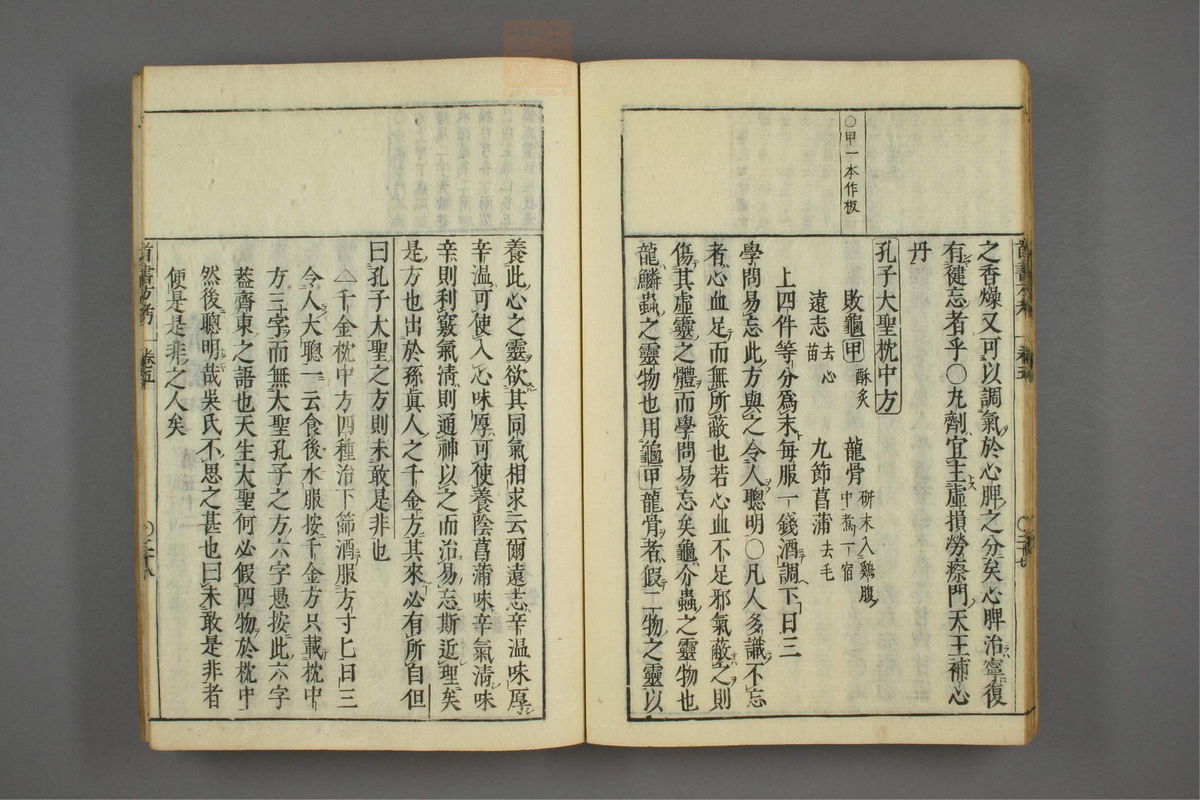 〇甲一本作板
之香燥又可以調氣於心脾之分矣心脾治寧復
有健忘者乎〇九劑宜主虛損勞瘵門天王補心
丹
孔子大聖枕中方
敗龜甲酥炙 龍骨研末入雞腹中煮一宿
遠志去心苗 九節菖蒲去毛
上四件等分爲末每服一錢酒調下日三
學問易忘此方與之令人聰明〇凡人多識不忘
者心血足而無所蔽也若心血不足邪氣蔽之則
傷其虛靈之體而學問易忘矣龜介蟲之靈物也
龍鱗蟲之靈物也用龜甲龍骨者假二物之靈以
養此心之靈欲其同氣相求云爾遠志辛温味厚
辛温可使入心味厚可使養陰菖蒲味辛氣清味
辛則利竅氣清則通神以之而治易忘斯近理矣
是方也出於孫眞人之千金方其來必有所自但
曰孔子大聖之方則未敢是非也
△千金枕中方四種治下篩酒服方寸匕日三
令人大聰一云食後水服按千金方只載枕中
方三字而無大聖孔子之方六字愚按此六字
葢齊東之語也天生大聖何必假四物於枕中
然後聰明哉吳氏不思之甚也曰未敢是非者
便是是非之人矣
首書方考 卷五 〇三十八